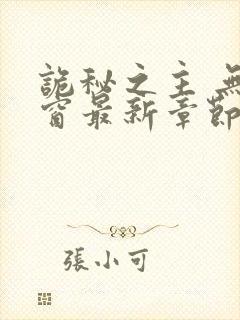 詭秘之主 無
窗最新章節
張小可